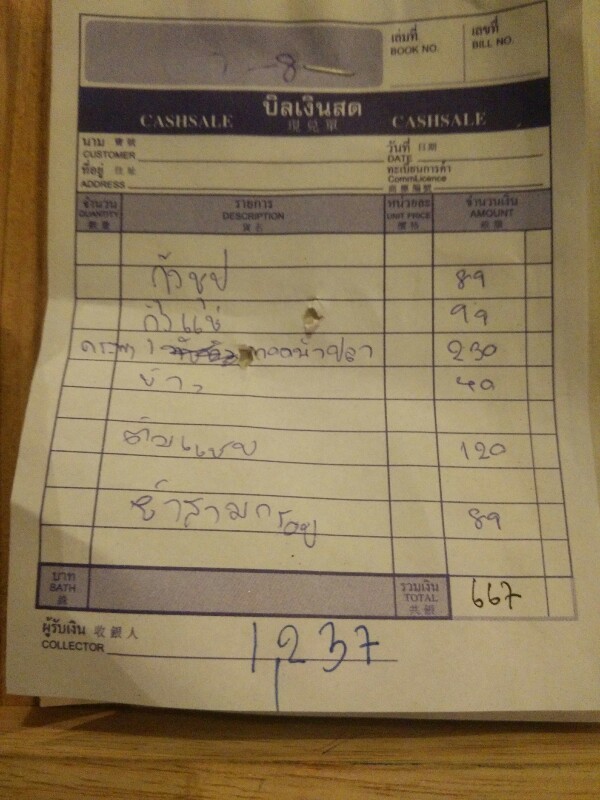 เล่มที่ เลขที่
BOOK NO. BILL NO.
-8-
บิลเงินสด
CASHSALE 現兌單 CASHSALE
นาม 寶號 วันที่ 日期
CUSTOMER DATE
ที่อยู่ 住址 ทะเบียนการค้า
ADDRESS CommLicence
商業編號
จำนวน รายการ หน่วยละ จำนวนเงิน
QUANTITY DESCRIPTION UNIT PRICE AMOUNT
數量 貨名 價格 銀額
กุ้งชุป 89
กุ้งแช่ 99
กระพง 1 ทอดน้ำปลา 230
ข้าว 40
ต้มแซบ 120
ยำสามกรอบ 89
บาท รวมเงิน
BATH TOTAL 667
銖 共銀
ผู้รับเงิน 收銀人
COLLECTOR 1,237